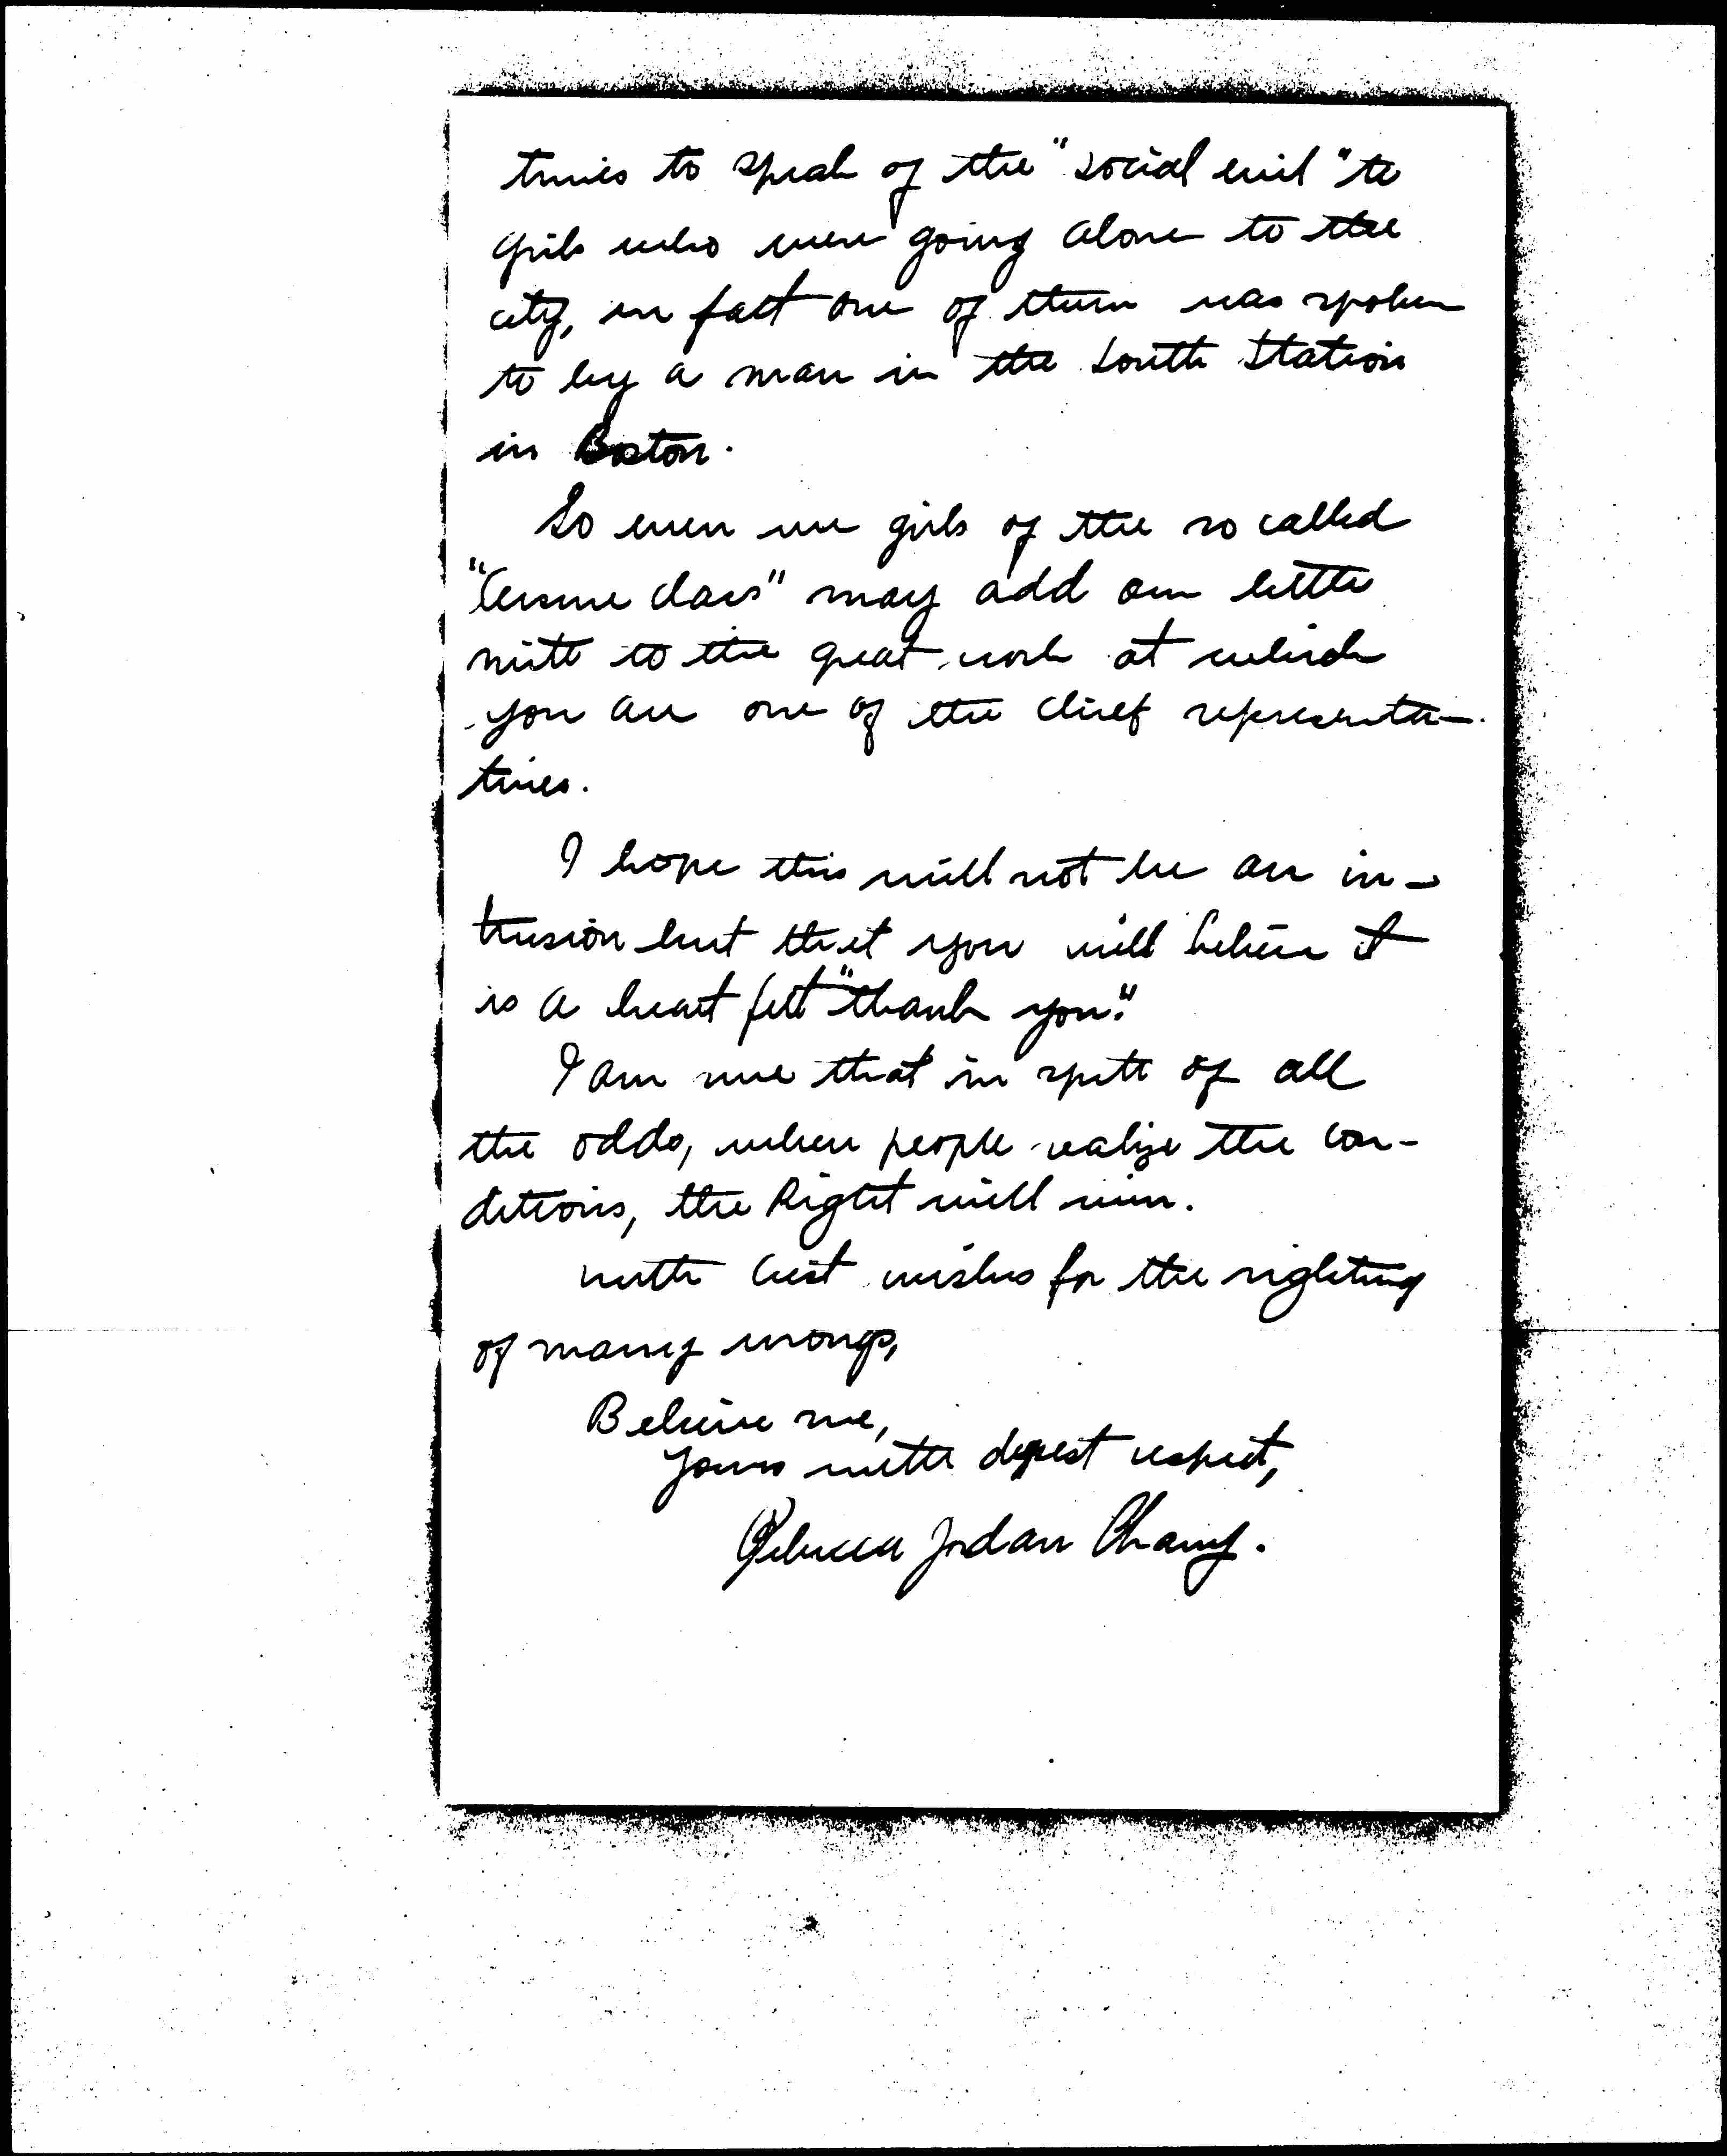 times to speak of the "social evil" to
girls who were going alone to the
city, in fact one of them was spoken
to by a man in the South Station
in Boston.
So even we girls of the so called
"leisure class" may add our little
mite to the great work at which
you are one of the chief representa-
tives.
I hope this will not be an in-
trusion but that you will believe it
is a heart felt "thank you."
I am sure that in spite of all
the odds, when people realize the con-
ditions, the Right will win.
With best wishes for the righting
of many wrongs,
Believe me,
Yours with deepest respect,
Rebecca Jordan